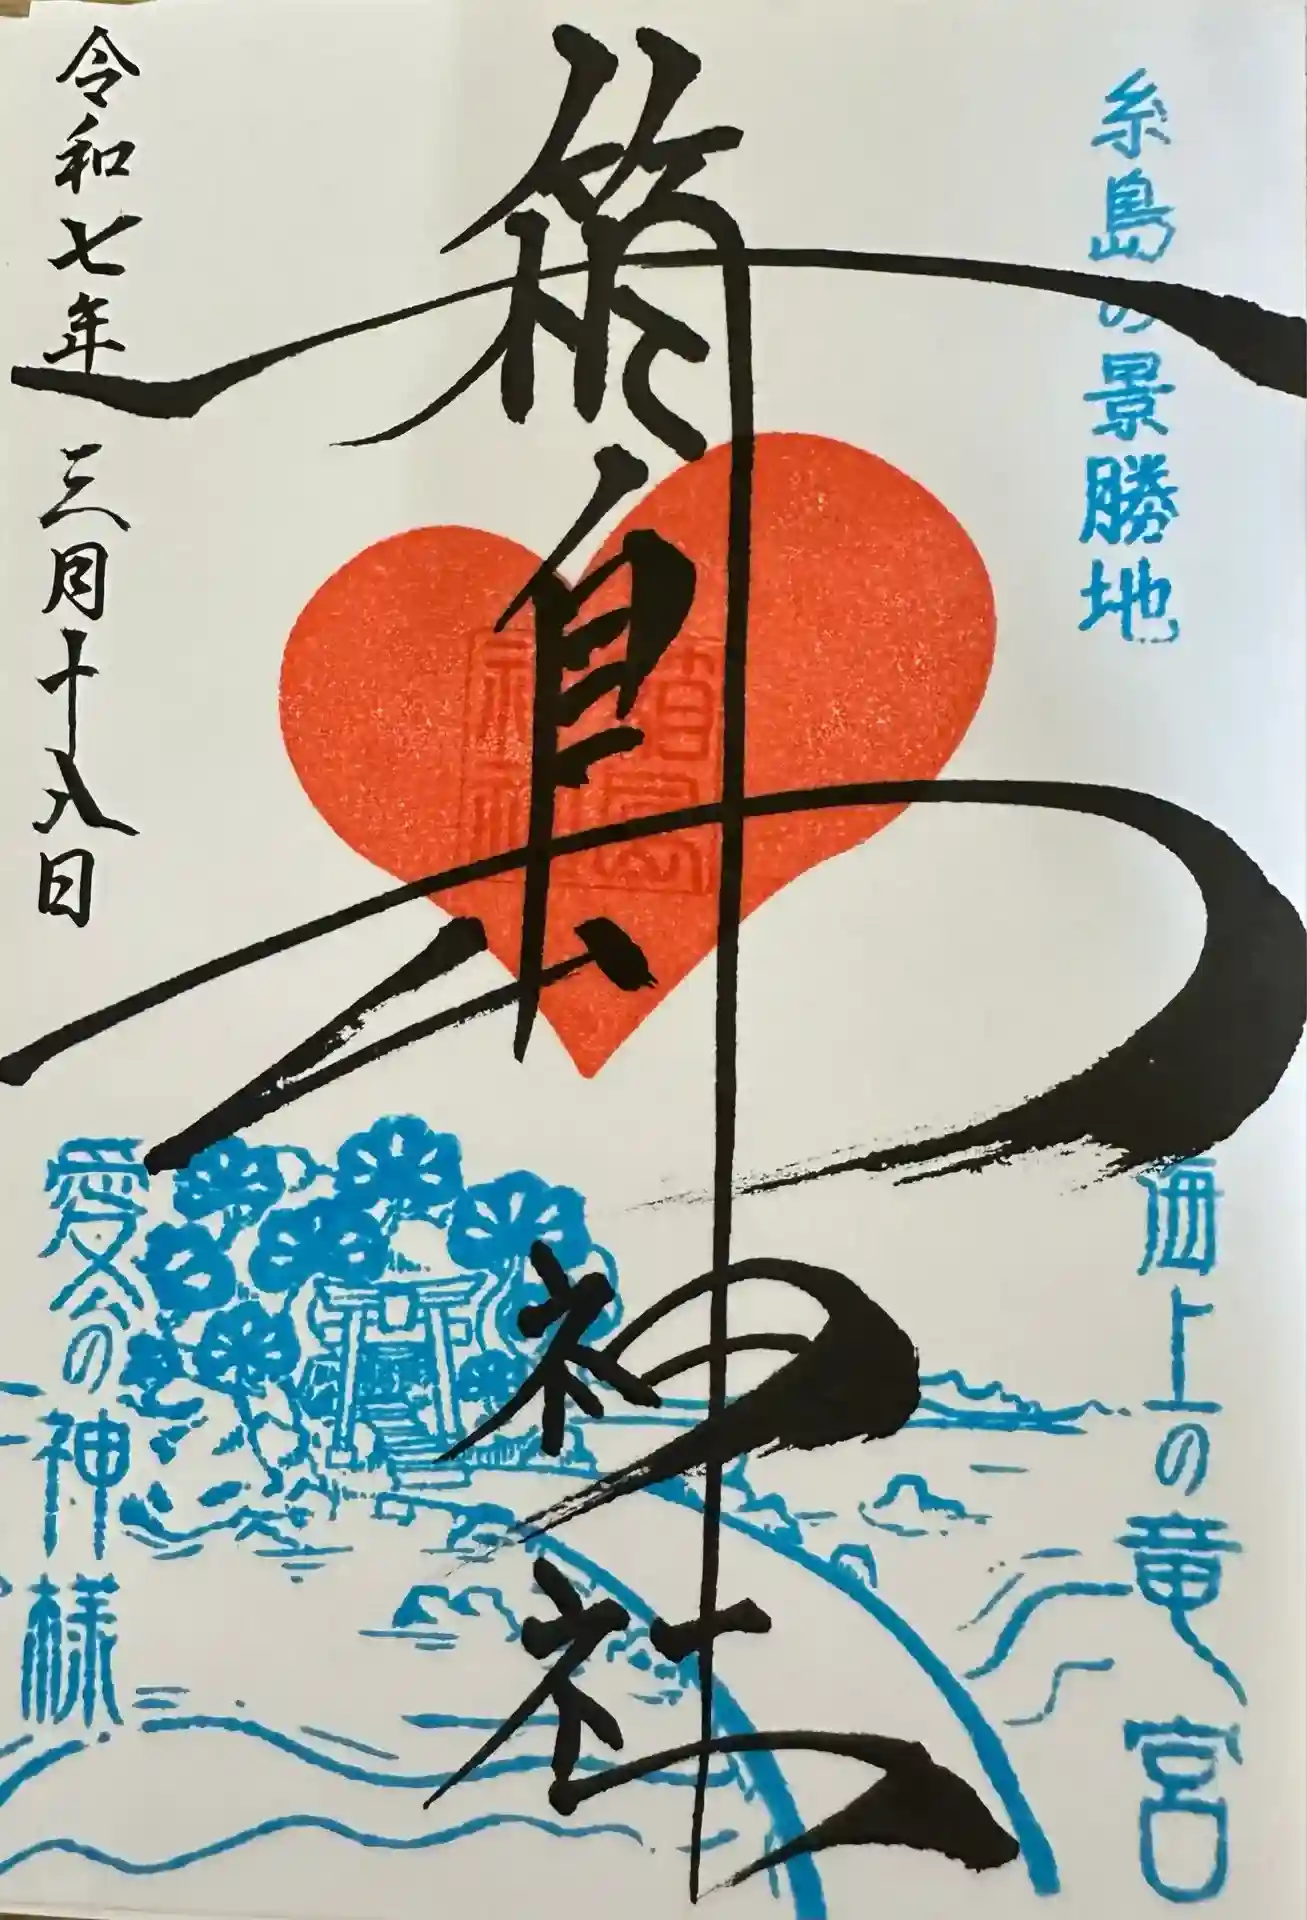 糸島の景勝地
海上の竜宮
箱島神社
箱島
神社
愛愍の神様
令和七年三月十八日